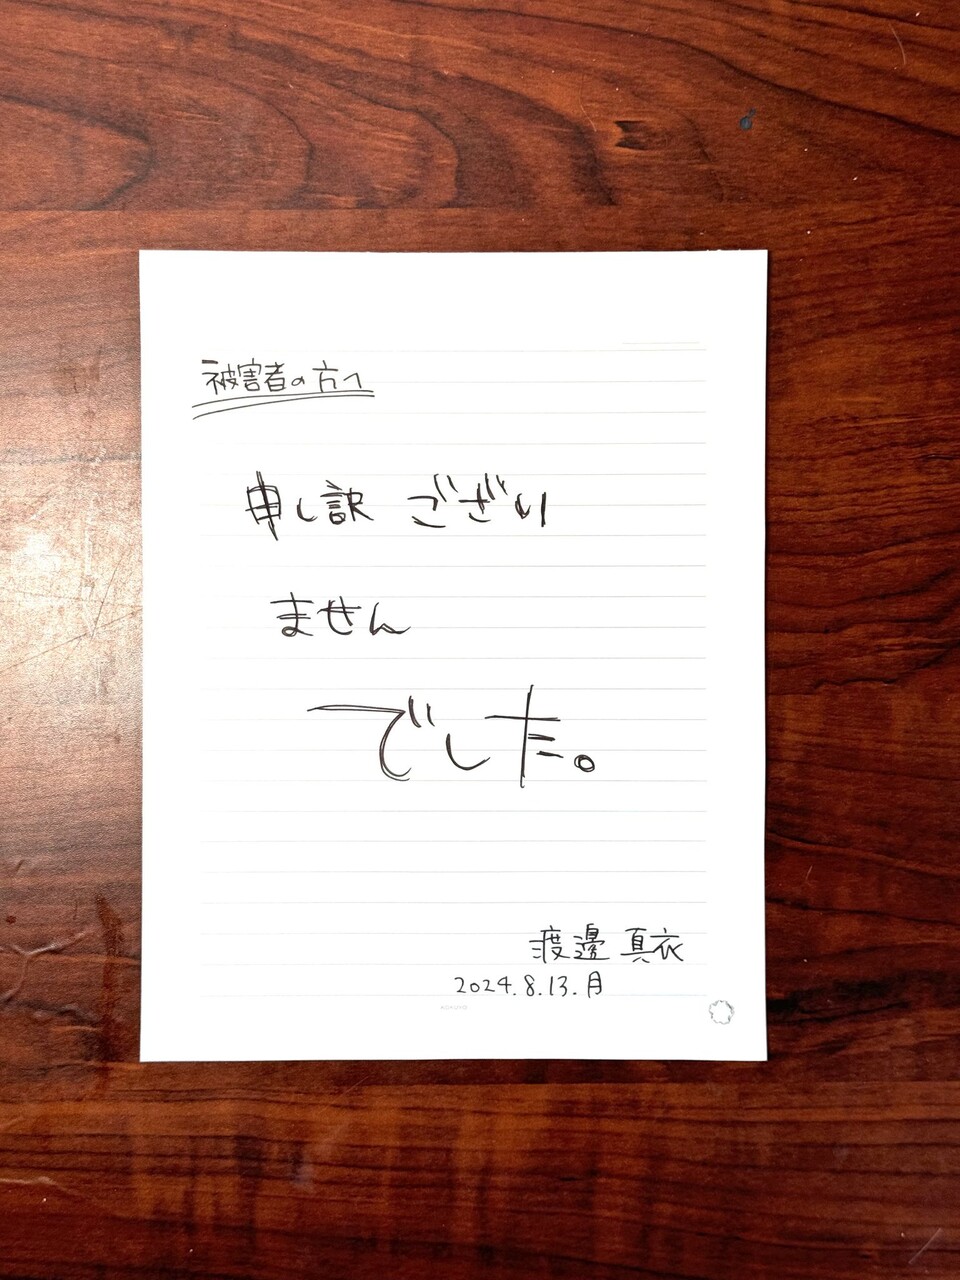 被害者の方へ
申し訳ござい
ません
でした。
渡邊 真衣
2024.8.13.月
KOKUYO